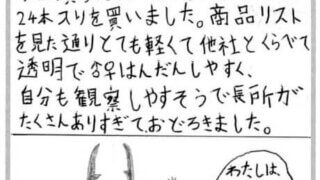 24本入りを買いました。商品リスト
を見た通りとても軽くて他社とくらべて
透明で はんだんしやすく、
自分も観察しやすそうで長所が
たくさんありすぎておどろきました。
わたしは、